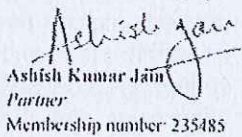 Ashish Jain
Ashish Kumar Jain
Partner
Membership number: 235485